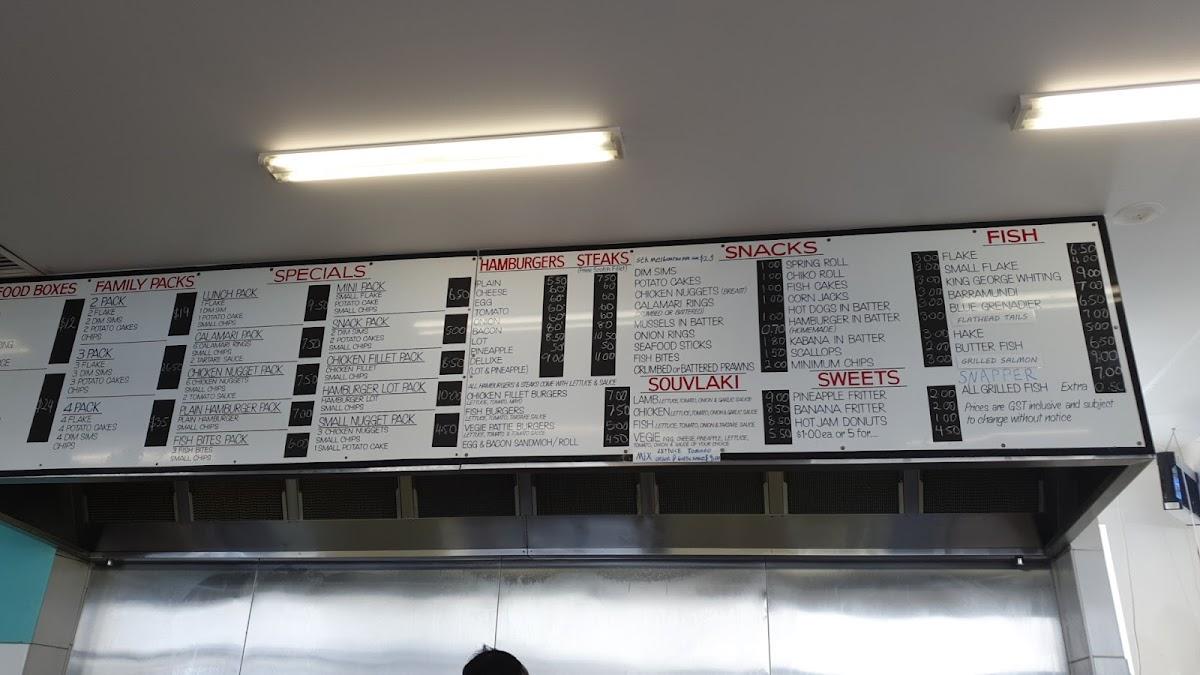 FOOD BOXES
$12
$24
FAMILY PACKS
2 PACK
2 FLAKE
2 DIM SIMS
2 POTATO CAKES
CHIPS
$19
3 PACK
3 FLAKE
3 DIM SIMS
3 POTATO CAKES
CHIPS
4 PACK
4 FLAKE
4 POTATO CAKES
4 DIM SIMS
CHIPS
$35
SPECIALS
LUNCH PACK
1 FLAKE
1 DIM SIM
1 POTATO CAKE
SMALL CHIPS
9.50
CALAMARI PACK
5 CALAMARI RINGS
SMALL CHIPS
2 TARTARE SAUCE
7.50
CHICKEN NUGGET PACK
6 CHICKEN NUGGETS
SMALL CHIPS
2 TOMATO SAUCE
7.50
PLAIN HAMBURGER PACK
PLAIN HAMBURGER
SMALL CHIPS
7.00
FISH BITES PACK
3 FISH BITES
SMALL CHIPS
6.00
MINI PACK
SMALL FLAKE
POTATO CAKE
SMALL CHIPS
6.50
SNACK PACK
2 DIM SIMS
2 POTATO CAKES
SMALL CHIPS
5.00
CHICKEN FILLET PACK
CHICKEN FILLET
SMALL CHIPS
6.50
HAMBURGER LOT PACK
HAMBURGER LOT
SMALL CHIPS
10.00
SMALL NUGGET PACK
3 CHICKEN NUGGETS
SMALL CHIPS
1 SMALL POTATO CAKE
4.50
HAMBURGERS STEAKS
(Prime Scotch Fillet)
PLAIN 5.50 7.50
CHEESE
EGG
TOMATO
ONION
BACON
LOT
PINEAPPLE
DELUXE
(LOT & PINEAPPLE) 9.00 11.00
ALL HAMBURGERS & STEAKS COME WITH LETTUCE & SAUCE
CHICKEN FILLET BURGERS 7.00
LETTUCE, TOMATO, MAYO
FISH BURGERS 7.50
LETTUCE, TOMATO, TARTARE SAUCE
VEGIE PATTIE BURGERS 5.00
LETTUCE, TOMATO & TOMATO SAUCE
EGG & BACON SANDWICH/ROLL 4.50
SNACKS
DIM SIMS 1.00
POTATO CAKES 1.00
CHICKEN NUGGETS (BREAST) 1.00
CALAMARI RINGS 1.00
(CRUMBED OR BATTERED)
MUSSELS IN BATTER 1.00
ONION RINGS 0.70
SEAFOOD STICKS 1.80
FISH BITES 1.50
CRUMBED OR BATTERED PRAWNS
SPRING ROLL 3.00
CHIKO ROLL
FISH CAKES
CORN JACKS
HOT DOGS IN BATTER
HAMBURGER IN BATTER
(HOMEMADE)
KABANA IN BATTER
SCALLOPS
MINIMUM CHIPS 3.00
SOUVLAKI
LAMB LETTUCE, TOMATO, ONION & GARLIC SAUCE 9.00
CHICKEN LETTUCE, TOMATO, ONION & GARLIC SAUCE
FISH LETTUCE, TOMATO, ONION & TARTARE SAUCE
VEGIE EGG, CHEESE, PINEAPPLE, LETTUCE, 5.50
TOMATO, ONION & SAUCE OF YOUR CHOICE
LETTUCE TOMATO
MIX
SWEETS
PINEAPPLE FRITTER 2.00
BANANA FRITTER 2.00
HOT JAM DONUTS 1.00
$1.00 ea. or 5 for.... 4.50
FISH
FLAKE 6.50
SMALL FLAKE 4.00
KING GEORGE WHITING 9.00
BARRAMUNDI 7.00
BLUE GRENADIER 6.50
FLATHEAD TAILS
HAKE 5.00
BUTTER FISH 6.50
GRILLED SALMON 9.00
SNAPPER 7.00
ALL GRILLED FISH Extra 0.50
Prices are GST inclusive and subject
to change without notice